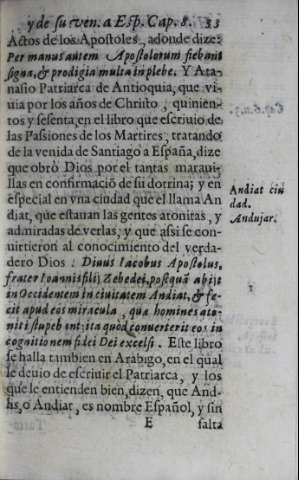 y de su ven. a Esp. Cap. 8. 33
Actos de los Apostoles, adonde dize:
Per manus autem Apostolorum fiebant
signa, & prodigia multa in plebe. Y Ata-
nasio Patriarca de Antioquia, que vi-
uia por los años de Christo, quinien-
tos y sesenta, en el libro que escriuio de
las Passiones de los Martires, tratando
de la venida de Santiago a España, dize
que obrò Dios por el tantas maraui-
llas en confirmaciō de su dotrina; y en
especial en vna ciudad que el llama An
diat, que estauan las gentes atonitas, y
admiradas de verlas, y que assi se con-
uirtieron al conocimiento del verda-
dero Dios: Diuus Iacobus Apostolus,
frater Ioannis filij Zebedei, postquā abijt
in Occidentem in ciuitatem Andiat, & fe-
cit apud eos miracula, quæ homines ato-
niti stupebant: ita quòd conuerterit eos in
cognitionem fidei Dei excelsi. Este libro
se halla tambien en Arabigo, en el qual
le deuio de escriuir el Patriarca, y los
que le entienden bien, dizen, que And-
is, o Andiat, es nombre Español, y sin
E falta
Andiat ciu
dad.
Andujar.